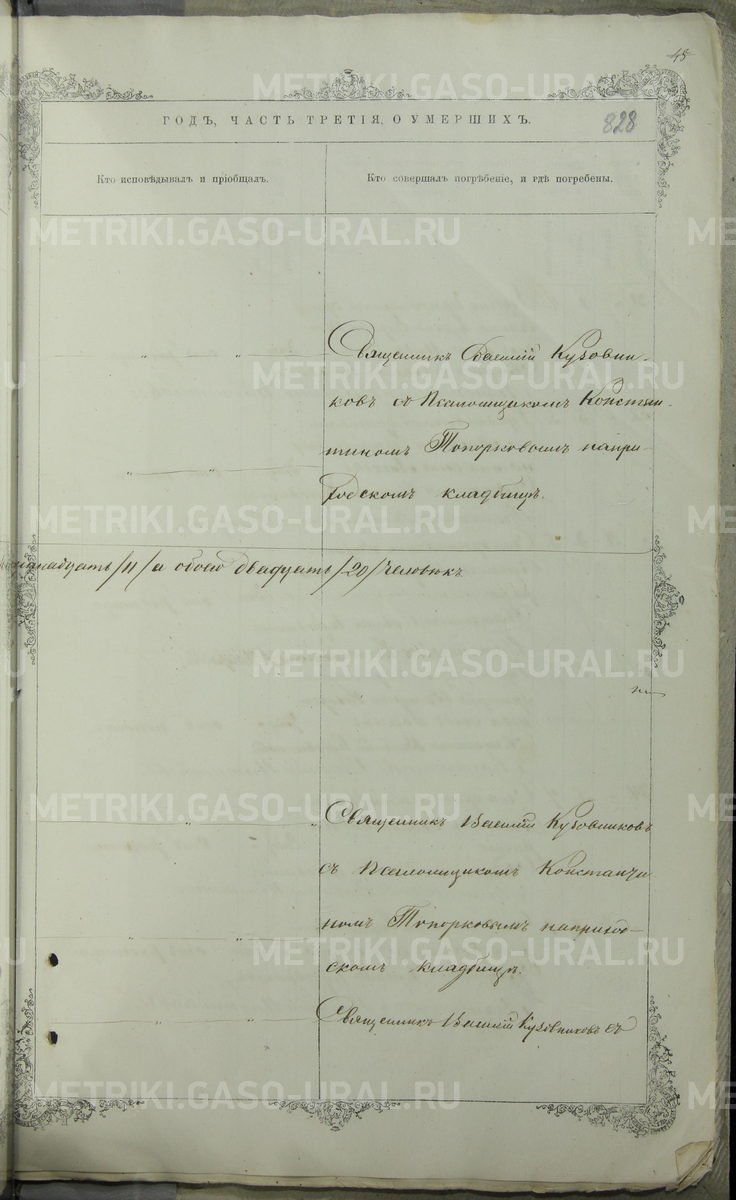 48
ГОДЪ, ЧАСТЬ ТРЕТІЯ, О УМЕРШИХЪ.
828
Кто исповѣдывалъ и пріобщалъ.
Кто совершалъ погрѣбеніе, и гдѣ погребены.
Священникъ Василій Кузовни-
ковъ съ Псаломщикомъ Констан-
тиномъ Топорковымъ напри-
ходскомъ кладбищѣ.
/11/ а обоего двадцать /20/ человѣкъ
Священникъ Василій Кузовниковъ
съ Псаломщикомъ Константи
номъ Топорковымъ наприход-
скомъ кладбищѣ.
Священникъ Василій Кузовниковъ съ
METRIKI.GASO-URAL.RU